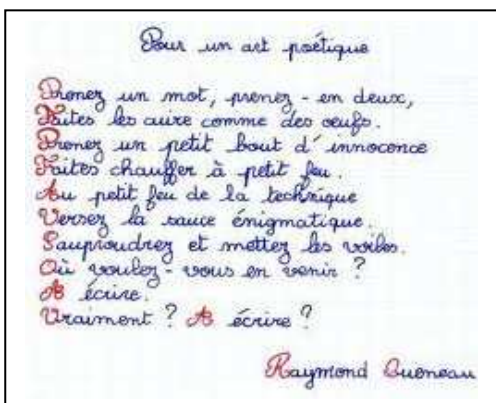 Pour un art poétique
Prenez un mot, prenez-en deux,
Faites les cuire comme des oeufs.
Prenez un petit bout d'innocence
Faites chauffer à petit feu.
Au petit feu de la technique
Versez la sauce énigmatique.
Saupoudrez et mettez les voiles.
Où voulez-vous en venir ?
A écrire.
Vraiment ? A écrire ?
Raymond Queneau